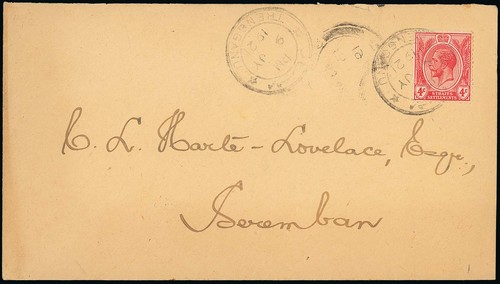 STRAITS
SETTLEMENTS
4c 4c
C. L. Harte-Lovelace, Esqr.,
Seremban